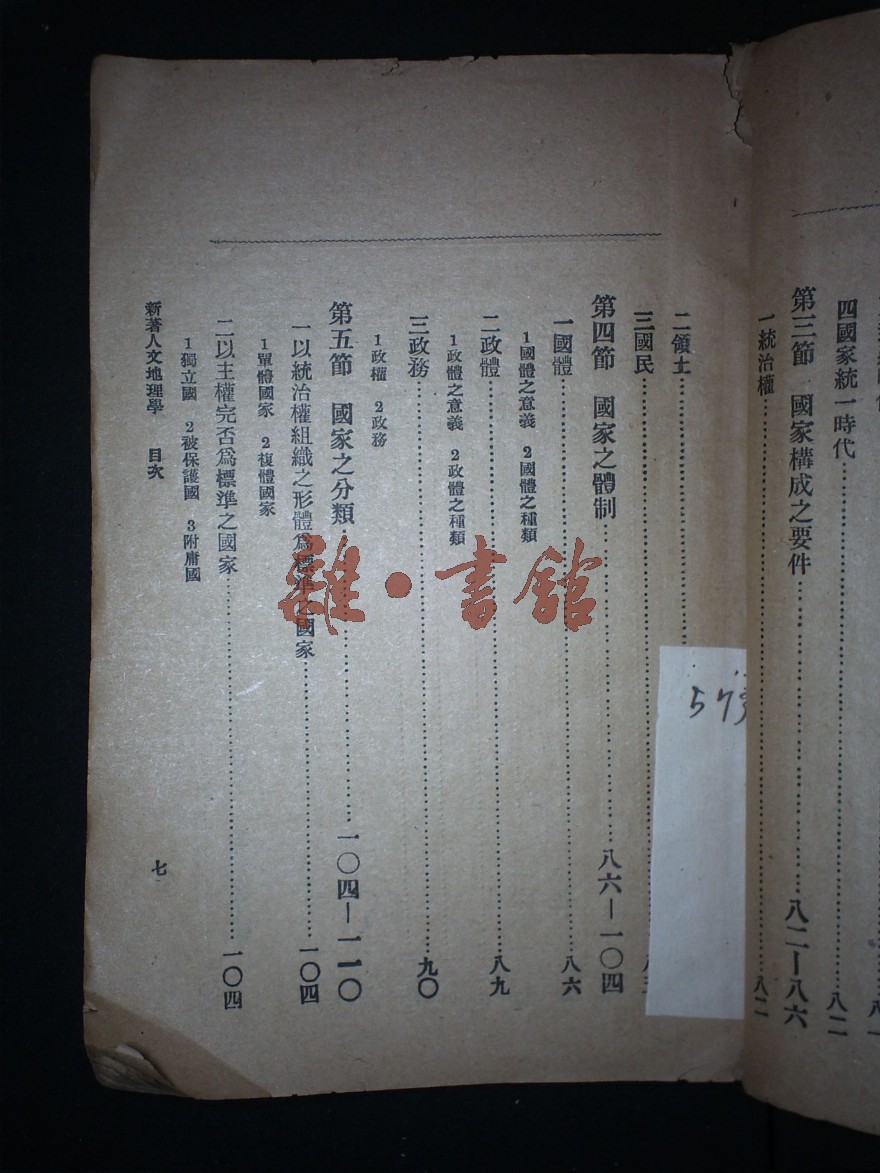 四國家統一時代……八二
第三節　國家構成之要件……八二—八六
一統治權……八二
二領土
三國民……八三
第四節　國家之體制……八六—一〇四
一國體……八六
1國體之意義　2國體之種類
二政體……八九
1政體之意義　2政體之種類
三政務……九〇
1政權　2政務
第五節　國家之分類……一〇四—一一〇
一以統治權組織之形體爲標準之國家……一〇四
1單體國家　2複體國家
二以主權完否爲標準之國家……一〇四
1獨立國　2被保護國　3附庸國
新著人文地理學　目次
七
雜·書館